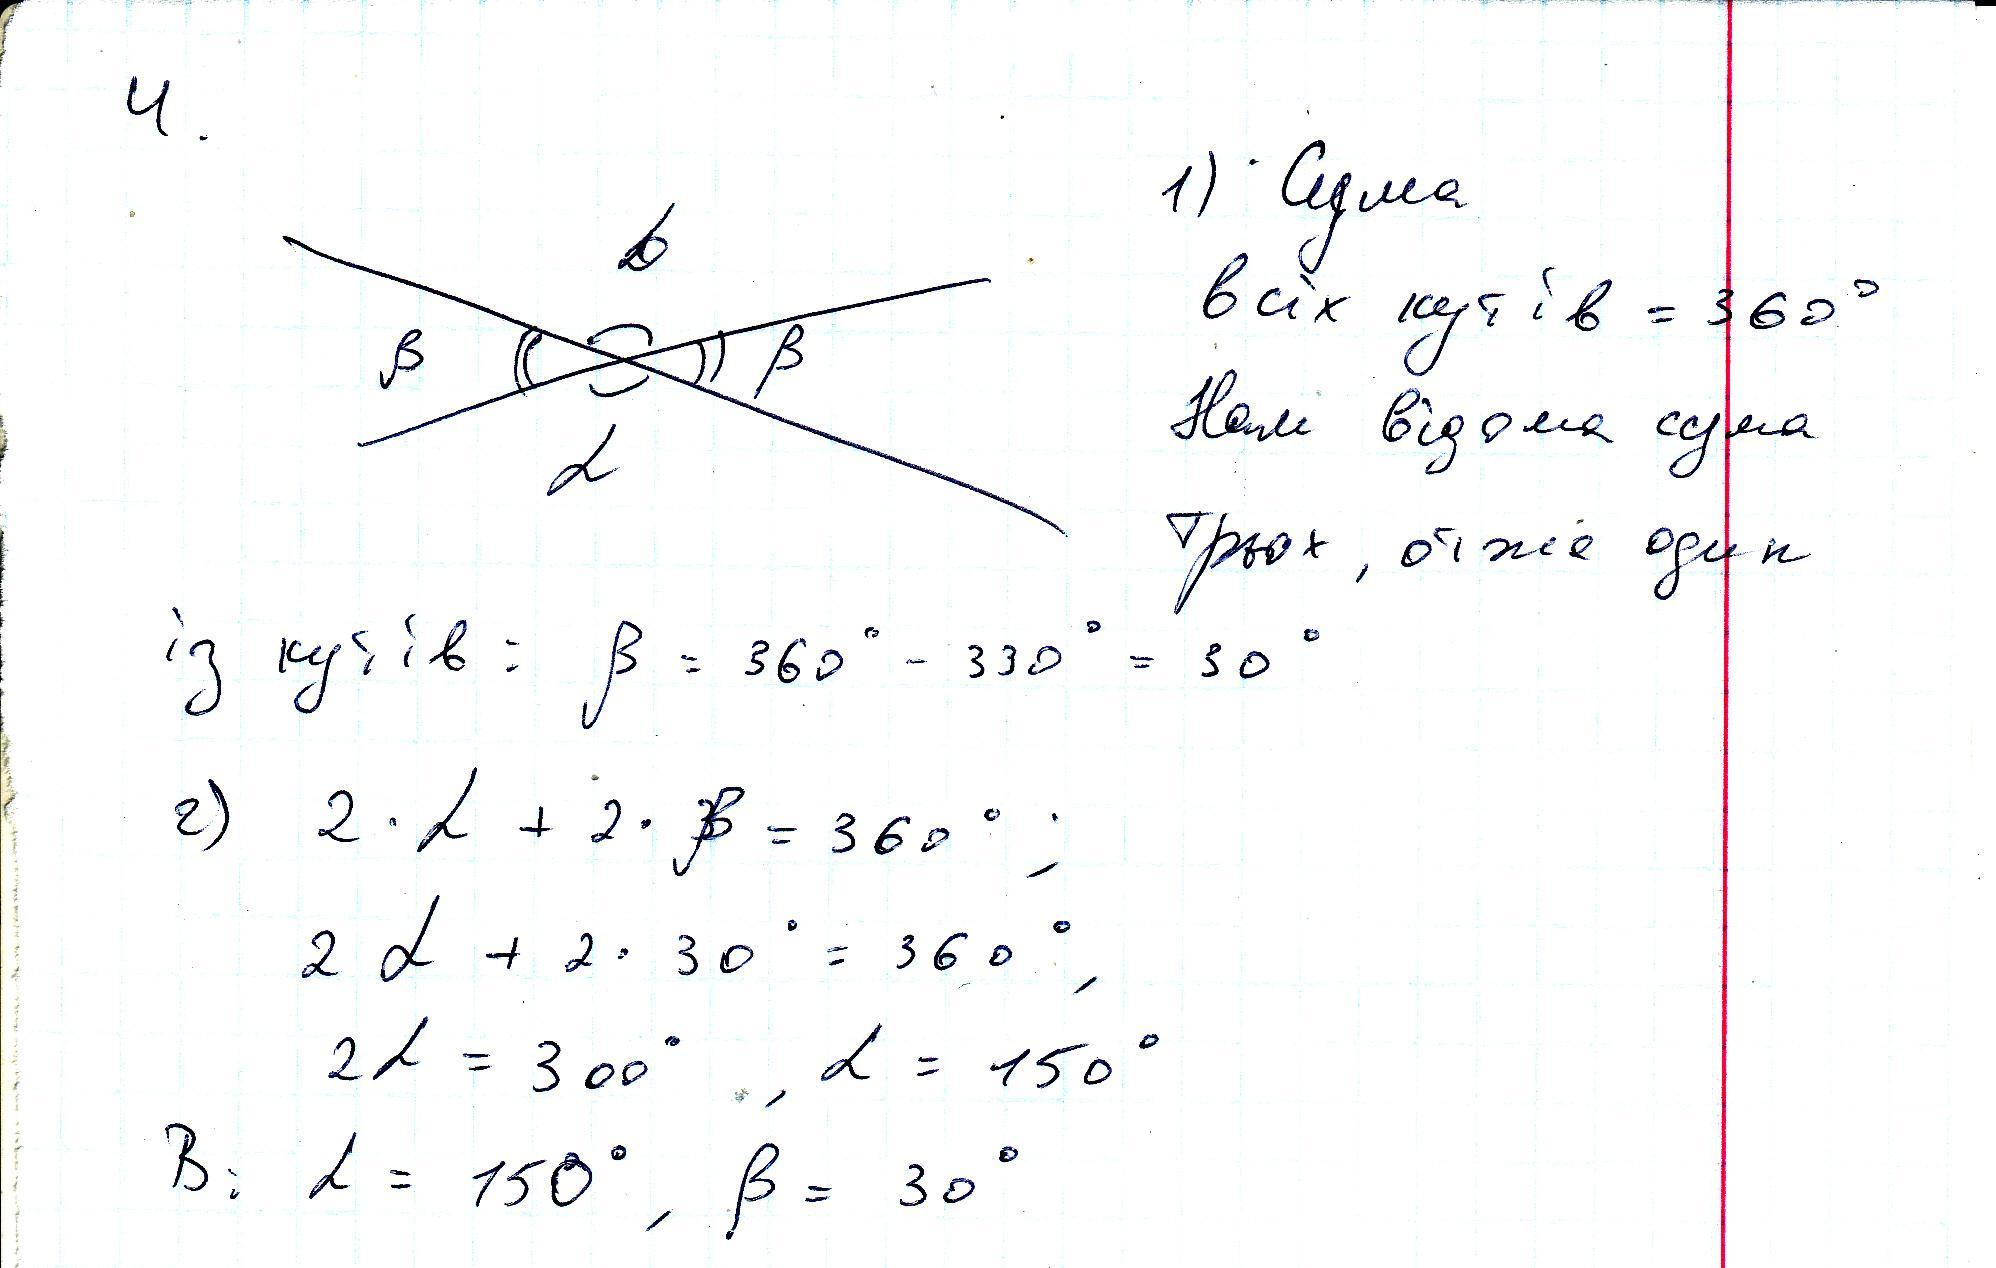 4.
1) Сума
всіх кутів = 360°
Нам відома сума
трьох, отже один
із кутів: β = 360° - 330° = 30°
α
β
β
α
2) 2 · α + 2 · β = 360° ;
2α + 2 · 30° = 360° ,
2α = 300° , α = 150°
В: α = 150° , β = 30°